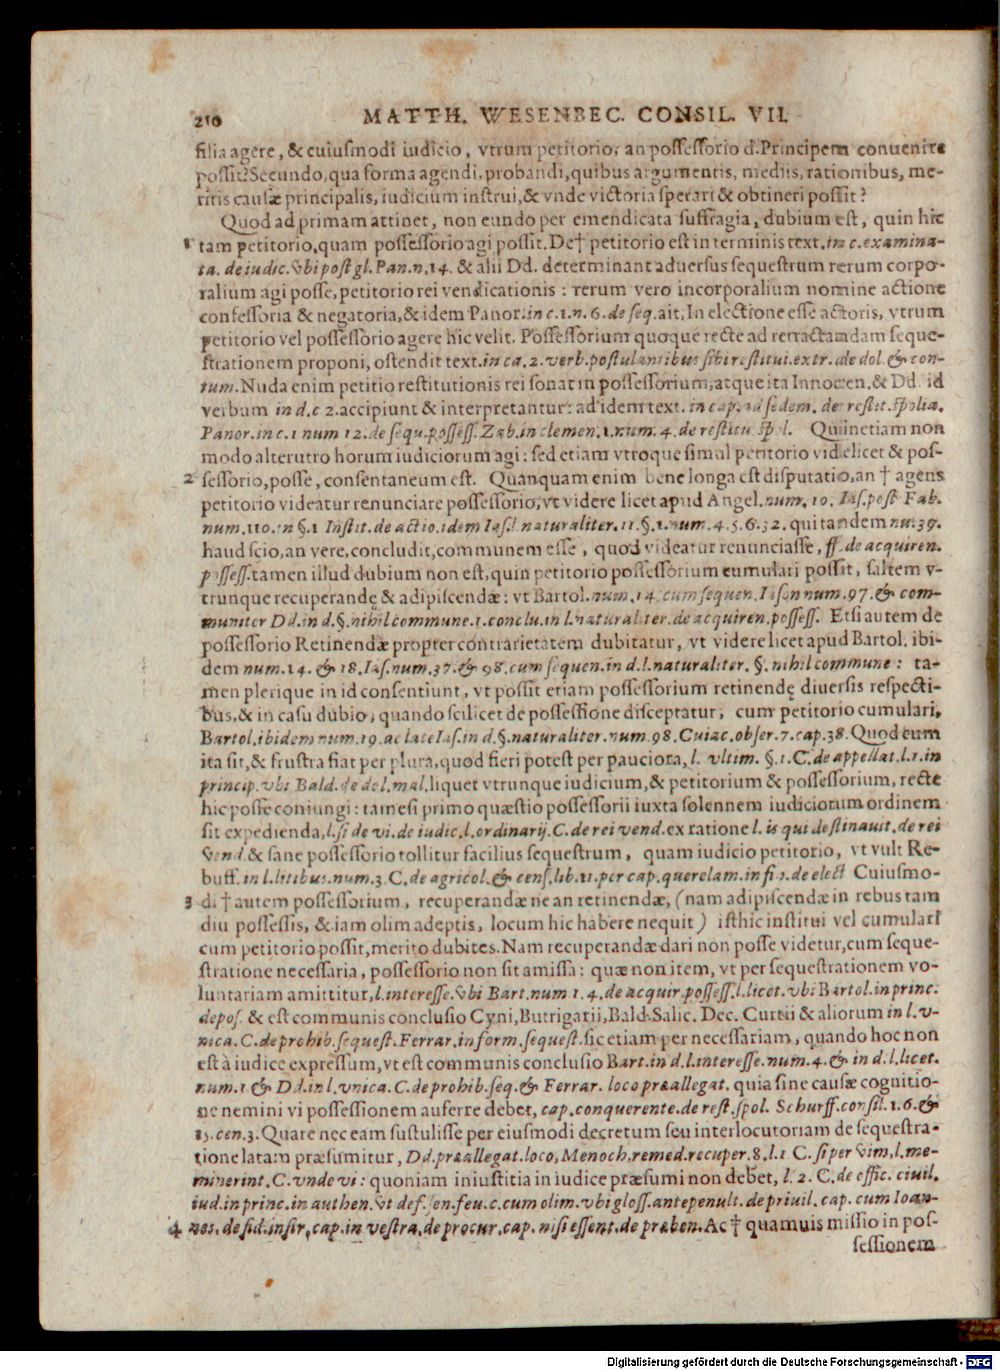 210 MATTH. WESENBEC. CONSIL. VII.
filia agere, & cuiusmodi iudicio, vtrum petitorio, an possessorio d. Principem conuenire
possit? Secundo, qua forma agendi, probandi, quibus argumentis, mediis, rationibus, me-
ritis causæ principalis, iudicium instrui, & vnde victoria sperari & obtineri possit?
Quod ad primam attinet, non eundo per emendicata suffragia, dubium est, quin hic
1 tam petitorio, quam possessorio agi possit. De † petitorio est in terminis text. in c. examina-
ta. de iudic. vbi post gl. Pan. n. 14. & alii Dd. determinant aduersus sequestrum rerum corpo-
ralium agi posse, petitorio rei vendicationis: rerum vero incorporalium nomine actione
confessoria & negatoria, & idem Panor. in c. 1. n. 6. de seq. ait, In electione esse actoris, vtrum
petitorio vel possessorio agere hic velit. Possessorium quoque recte ad retractandam seque-
strationem proponi, ostendit text. in ca. 2. verb. postulantibus sibi restitui. extr. de dol. & con-
tum. Nuda enim petitio restitutionis rei sonat in possessorium, atque ita Innocen. & Dd. id
verbum in d. c 2. accipiunt & interpretantur: ad idem text. in cap. ad sedem. de restit. spolia.
Panor. in c. 1 num 12. de sequ. possess. Zab. in clemen. 1. num. 4. de restitu spol. Quinetiam non
modo alterutro horum iudiciorum agi: sed etiam vtroque simul petitorio videlicet & pos-
2 sessorio, posse, consentaneum est. Quanquam enim bene longa est disputatio, an † agens
petitorio videatur renunciare possessorio, vt videre licet apud Angel. num. 10. Ias. post Fab.
num. 110. in §. 1 Instit. de actio. idem Ias. l. naturaliter. 11. §. 1. num. 4. 5. 6. 32. qui tandem nu. 39.
haud scio, an vere, concludit, communem esse, quod videatur renunciasse, ff. de acquiren.
possess. tamen illud dubium non est, quin petitorio possessorium cumulari possit, saltem v-
trunque recuperandę & adipiscendæ: vt Bartol. num. 14. cum sequen. Iason num. 97. & com-
muniter Dd. in d. §. nihil commune. 1. conclu. in l. naturaliter. de acquiren. possess. Etsi autem de
possessorio Retinendæ propter contrarietatem dubitatur, vt videre licet apud Bartol. ibi-
dem num. 14. & 18. Ias. num. 37. & 98. cum sequen. in d. l. naturaliter. §. nihil commune: ta-
men plerique in id consentiunt, vt possit etiam possessorium retinendę diuersis respecti-
bus, & in casu dubio, quando scilicet de possessione disceptatur, cum petitorio cumulari.
Bartol. ibidem num. 19. ac late Ias. in d. §. naturaliter. num. 98. Cuiac. obser. 7. cap. 38. Quod cum
ita sit, & frustra fiat per plura, quod fieri potest per pauciora, l. vltim. §. 1. C. de appellat. l. 1. in
princip. vbi Bald. de dol. mal. liquet vtrunque iudicium, & petitorium & possessorium, recte
hic posse coniungi: tametsi primo quæstio possessorii iuxta solennem iudiciorum ordinem
sit expedienda, l. si de vi. de iudic. l. ordinarij. C. de rei vend. ex ratione l. is qui destinauit. de rei
vend. & sane possessorio tollitur facilius sequestrum, quam iudicio petitorio, vt vult Re-
buff. in l. litibus. num. 3. C. de agricol. & cens. lib. 11. per cap. querelam. in fi. 1. de elect Cuiusmo-
3 di † autem possessorium, recuperandæ ne an retinendæ, (nam adipiscendæ in rebus tam
diu possessis, & iam olim adeptis, locum hic habere nequit) isthic institui vel cumulari
cum petitorio possit, merito dubites. Nam recuperandæ dari non posse videtur, cum seque-
stratione necessaria, possessorio non sit amissa: quæ non item, vt per sequestrationem vo-
luntariam amittitur, l. interesse. vbi Bart. num 1. 4. de acquir. possess. l. licet. vbi Bartol. in princ.
depos. & est communis conclusio Cyni, Butrigarii, Bald. Salic. Dec. Curtii & aliorum in l. v-
nica. C. de prohib. sequest. Ferrar. in form. sequest. sic etiam per necessariam, quando hoc non
est à iudice expressum, vt est communis conclusio Bart. in d. l. interesse. num. 4. & in d. l. licet.
num. 1 & Dd. in l. vnica. C. de prohib. seq. & Ferrar. loco præallegat. quia sine causæ cognitio-
ne nemini vi possessionem auferre debet, cap. conquerente. de rest. spol. Schurff. consil. 1. 6. &
15. cen. 3. Quare nec eam sustulisse per eiusmodi decretum seu interlocutoriam de sequestra-
tione latam præsumitur, Dd. præallegat. loco, Menoch. remed. recuper. 8. l. 1 C. si per vim, l. me-
minerint. C. vnde vi: quoniam iniustitia in iudice præsumi non debet, l. 2. C. de offic. ciuil.
iud. in princ. in authen. vt def. sen. feu. c. cum olim. vbi gloss. antepenult. de priuil. cap. cum Ioan-
4 nes. de fid. instr. cap. in vestra. de procur. cap. nisi essent. de præben. Ac † quamuis missio in pos-
sessionem
Digitalisierung gefördert durch die Deutsche Forschungsgemeinschaft - DFG